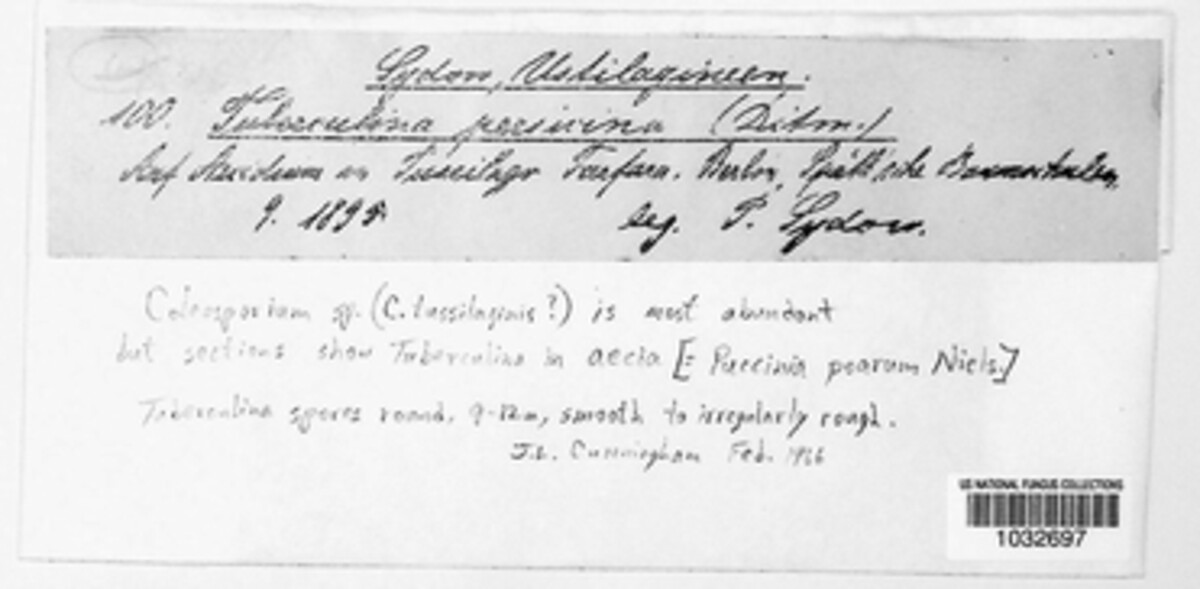 Sydow, Ustilagineen.
100. Tuberculina persicina (Ditm.)
Auf Aecidium an Tussilago Farfara. Berlin, Späth'sche Baumschulen,
9. 1895. leg. P. Sydow.
Coleosporium sp. (C. tussilaginis?) is most abundant
but sections show Tuberculina in aecia [= Puccinia poarum Niels.]
Tuberculina spores round, 9-12m, smooth to irregularly rough.
J.L. Cunningham Feb. 1966
US NATIONAL FUNGUS COLLECTIONS
1032697